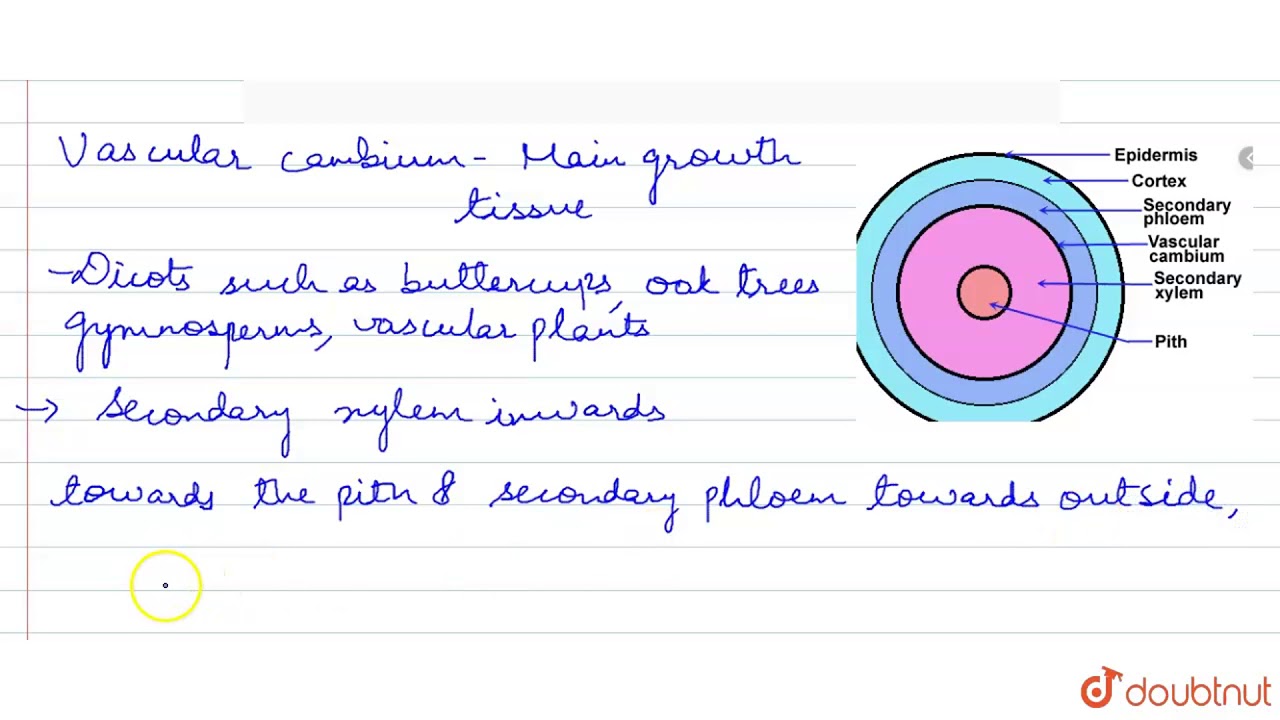 Vascular cambium - Main growth
tissue
- Dicots such as buttercups, oak trees
gymnosperms, vascular plants
→ Secondary xylem inwards
towards the pith & secondary phloem towards outside,
Epidermis
Cortex
Secondary
phloem
Vascular
cambium
Secondary
xylem
Pith
doubtnut